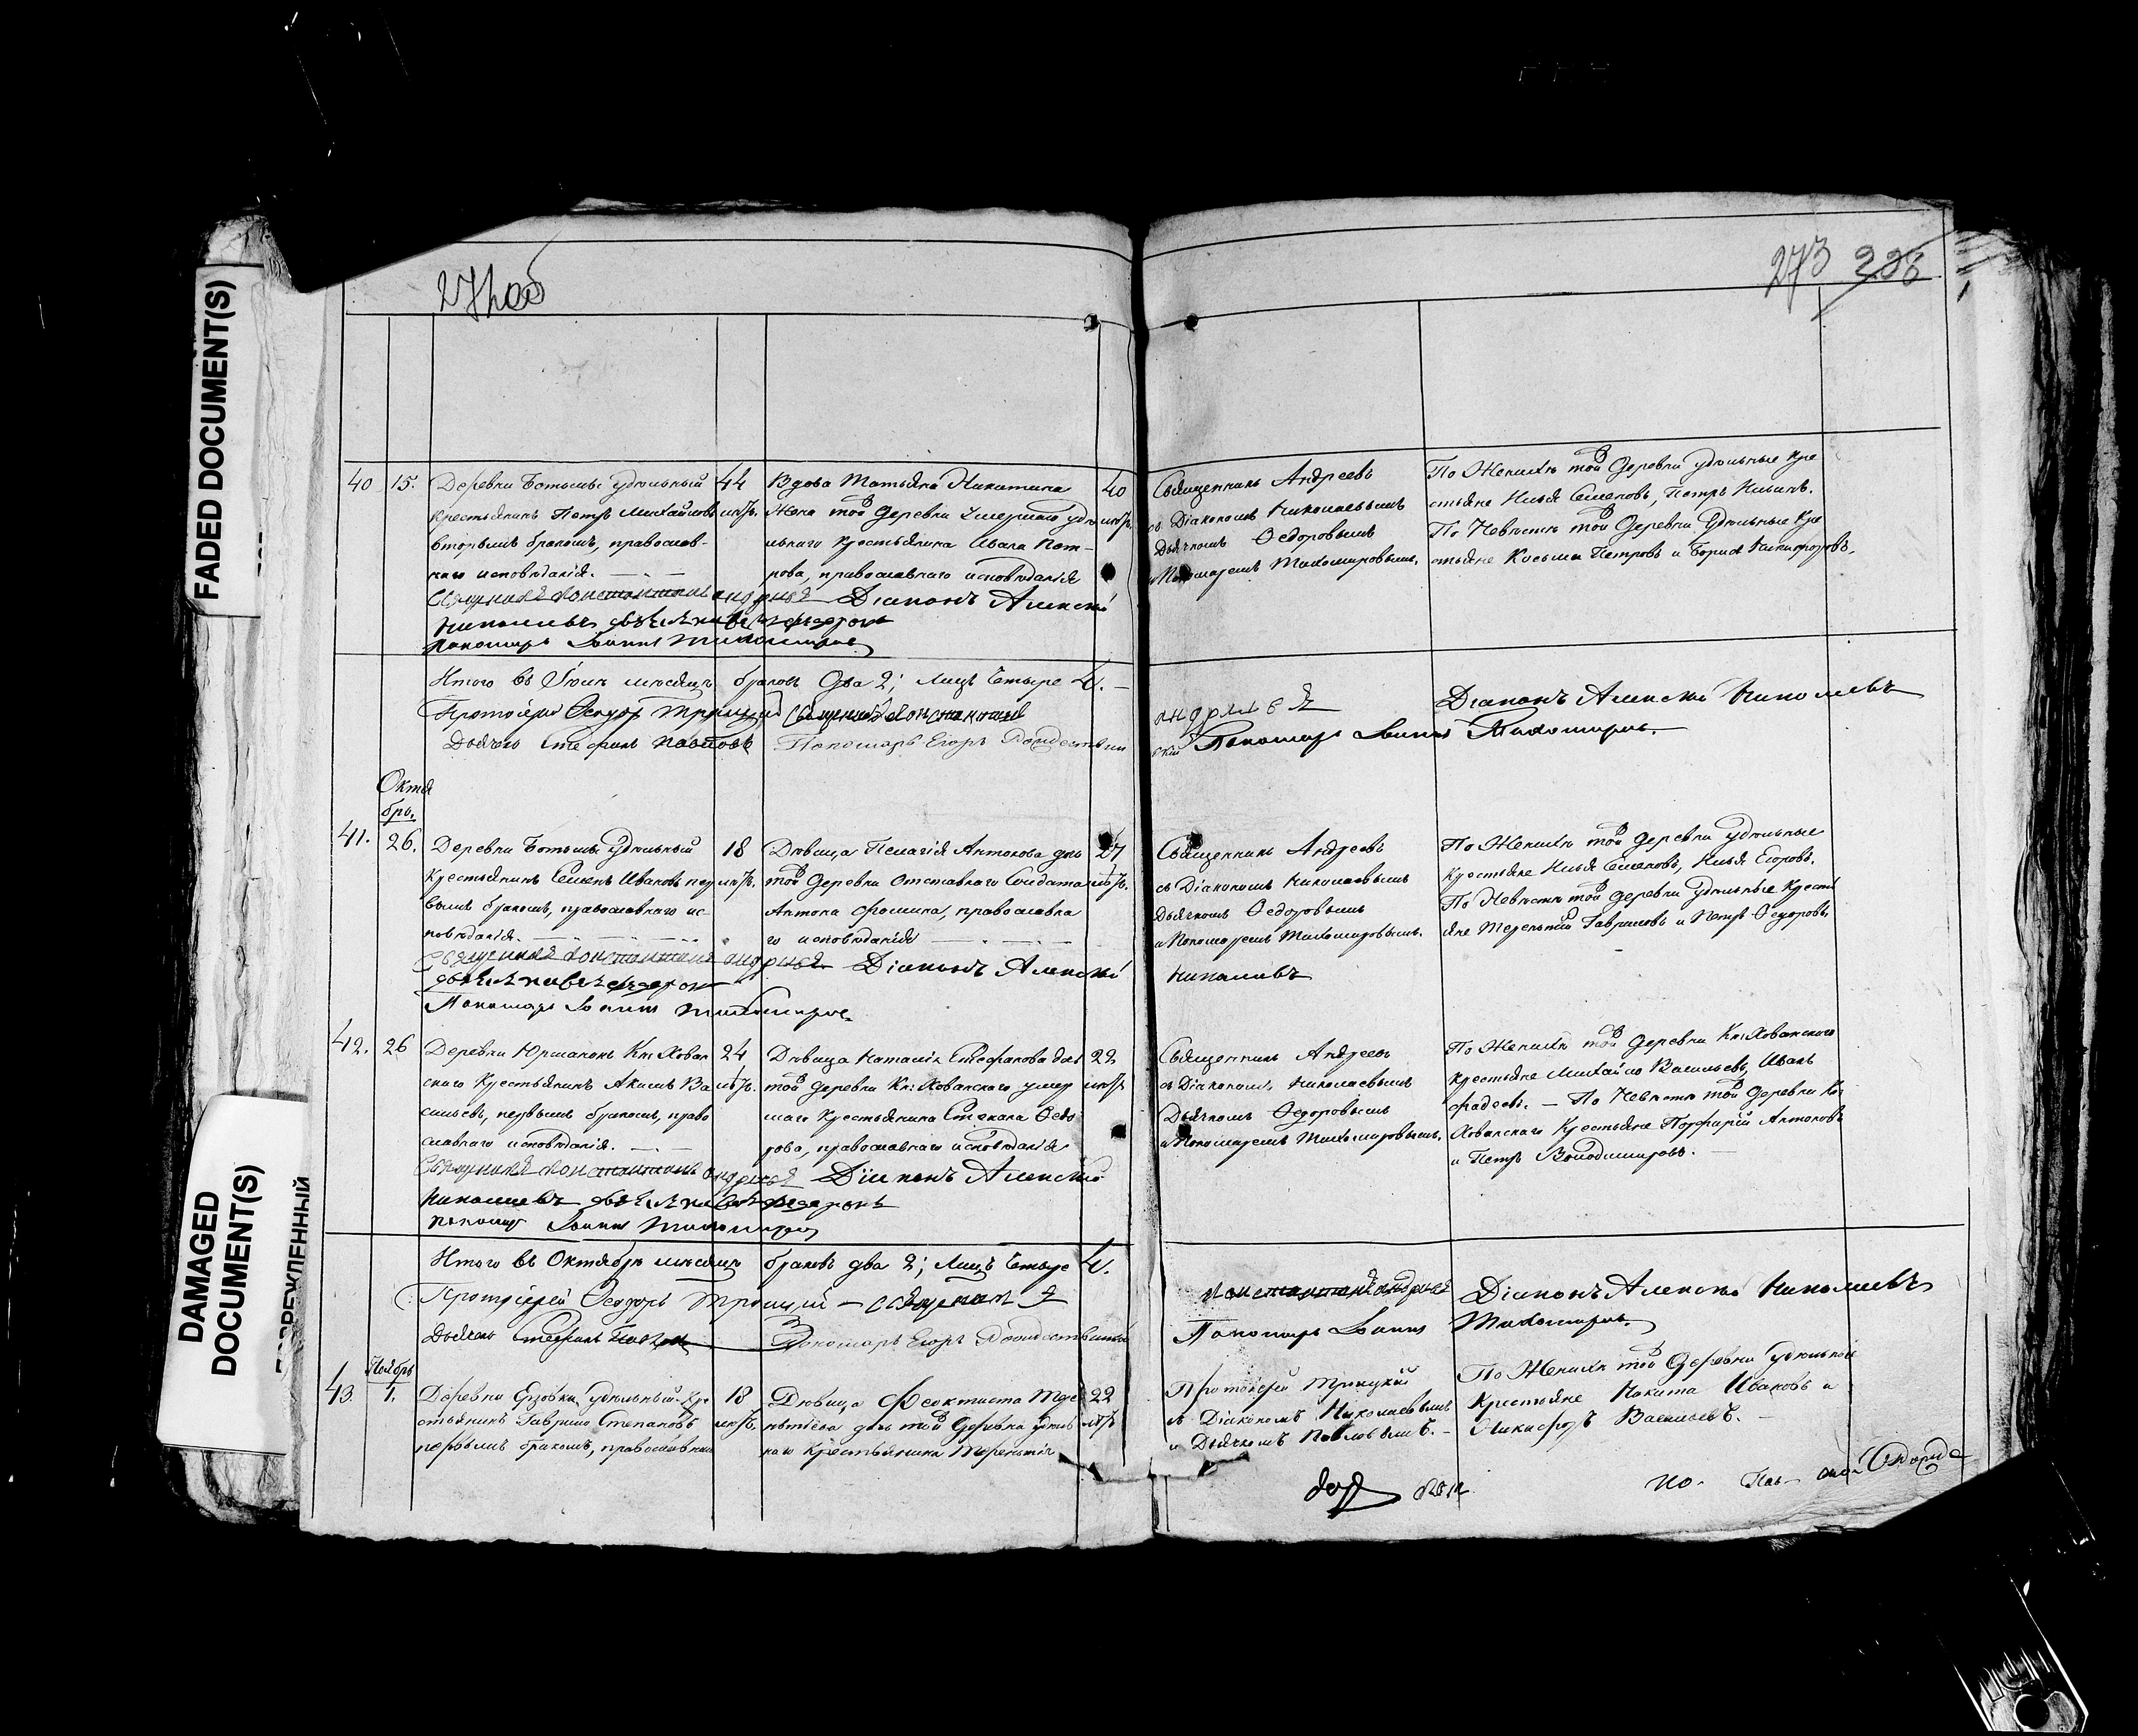 FADED DOCUMENT(S)
DAMAGED
DOCUMENT(S)
273
40
15.
Деревни Ботьмы Удѣльный
крестьянинъ Петръ Михайловъ
вторымъ бракомъ, православ-
наго исповѣданія.
44
лѣтъ.
Вдова Татьяна Никитина
Жена той деревни умершаго удѣ
льнаго крестьянина Ивана Пет-
рова, православнаго исповѣданія
40
лѣтъ.
Священникъ Андреевъ
съ Діакономъ Николаевымъ
Дьячкомъ Ѳедоровымъ
и Пономаремъ Тихомировымъ.
По Женихѣ той деревни удѣльные кре
стьяне Илья Семеновъ, Петръ Ильинъ.
По Невѣстѣ той деревни удѣльные кре
стьяне Косьма Петровъ и Борисъ Никифоровъ.
Священникъ Константинъ Андреевъ Діаконъ Алексѣй
Николаевъ Дьячекъ Ѳедоровъ
Пономарь Іоаннъ Тихомировъ
Итого въ Іюлѣ мѣсяцѣ браковъ два 2; лицъ четыре 4.
Протоіерей Ѳеодоръ Троицкій Священникъ Константинъ Андреевъ Діаконъ Алексѣй Николаевъ
Дьячекъ Стефанъ Павловъ Пономарь Егоръ Рождественскій Пономарь Іоаннъ Тихомировъ.
Октя
брь.
41.
26.
Деревни Ботьмы Удѣльный
крестьянинъ Семенъ Ивановъ пер
вымъ бракомъ, православнаго ис-
повѣданія.
18
лѣтъ.
Дѣвица Пелагія Антонова дочь
той деревни Отставнаго Солдата
Антона Фомина, православна
го исповѣданія
27
лѣтъ.
Священникъ Андреевъ
съ Діакономъ Николаевымъ
Дьячкомъ Ѳедоровымъ
и Пономаремъ Тихомировымъ.
По Женихѣ той деревни удѣльные
крестьяне Илья Семеновъ, Илья Егоровъ.
По Невѣстѣ той деревни удѣльные кресть
яне Терентій Гавриловъ и Петръ Ѳедоровъ.
Священникъ Константинъ Андреевъ Діаконъ Алексѣй Николаевъ
Дьячекъ Ѳедоровъ
Пономарь Іоаннъ Тихомировъ
42.
26
Деревни Юрманокъ Кн: Хован
скаго Крестьянинъ Акимъ Ва
сильевъ, первымъ бракомъ, право
славнаго исповѣданія.
24
лѣтъ.
Дѣвица Наталія Стефанова дочь
той деревни Кн: Хованскаго умер
шаго Крестьянина Стефана Ѳедо
рова, православнаго исповѣданія
22
лѣтъ
Священникъ Андреевъ
съ Діакономъ Николаевымъ
Дьячкомъ Ѳедоровымъ
и Пономаремъ Тихомировымъ.
По Женихѣ той деревни Кн: Хованскаго
крестьяне Михайло Васильевъ, Иванъ
Фадеевъ. — По Невѣстѣ той деревни Кн:
Хованскаго Крестьяне Порфирій Антоновъ
и Петръ Володимировъ.
Священникъ Константинъ Андреевъ Діаконъ Алексѣй
Николаевъ Дьячекъ Ѳедоровъ
Пономарь Іоаннъ Тихомировъ
Итого въ Октябрѣ мѣсяцѣ браковъ два 2; лицъ четыре 4.
Протоіерей Ѳеодоръ Троицкій — Священникъ Константинъ Андреевъ Діаконъ Алексѣй Николаевъ
Дьячекъ Стефанъ Павловъ Пономарь Егоръ Рождественскій Пономарь Іоаннъ Тихомировъ.
Ноябрь
43.
1.
Деревни Ерзовки Удѣльный Кре
стьянинъ Гаврило Степановъ
первымъ бракомъ, православнаго
18
лѣтъ.
Дѣвица Феоктиста Тере
нтіева дочь той Деревни удѣль
наго крестьянина Терентія
22
лѣтъ
Протоіерей Троицкій
съ Діакономъ Николаевымъ
и Дьячкомъ Павловымъ. —
По Женихѣ той Деревни Удѣльной
Крестьяне Никита Ивановъ и
Никифоръ Васильевъ. —